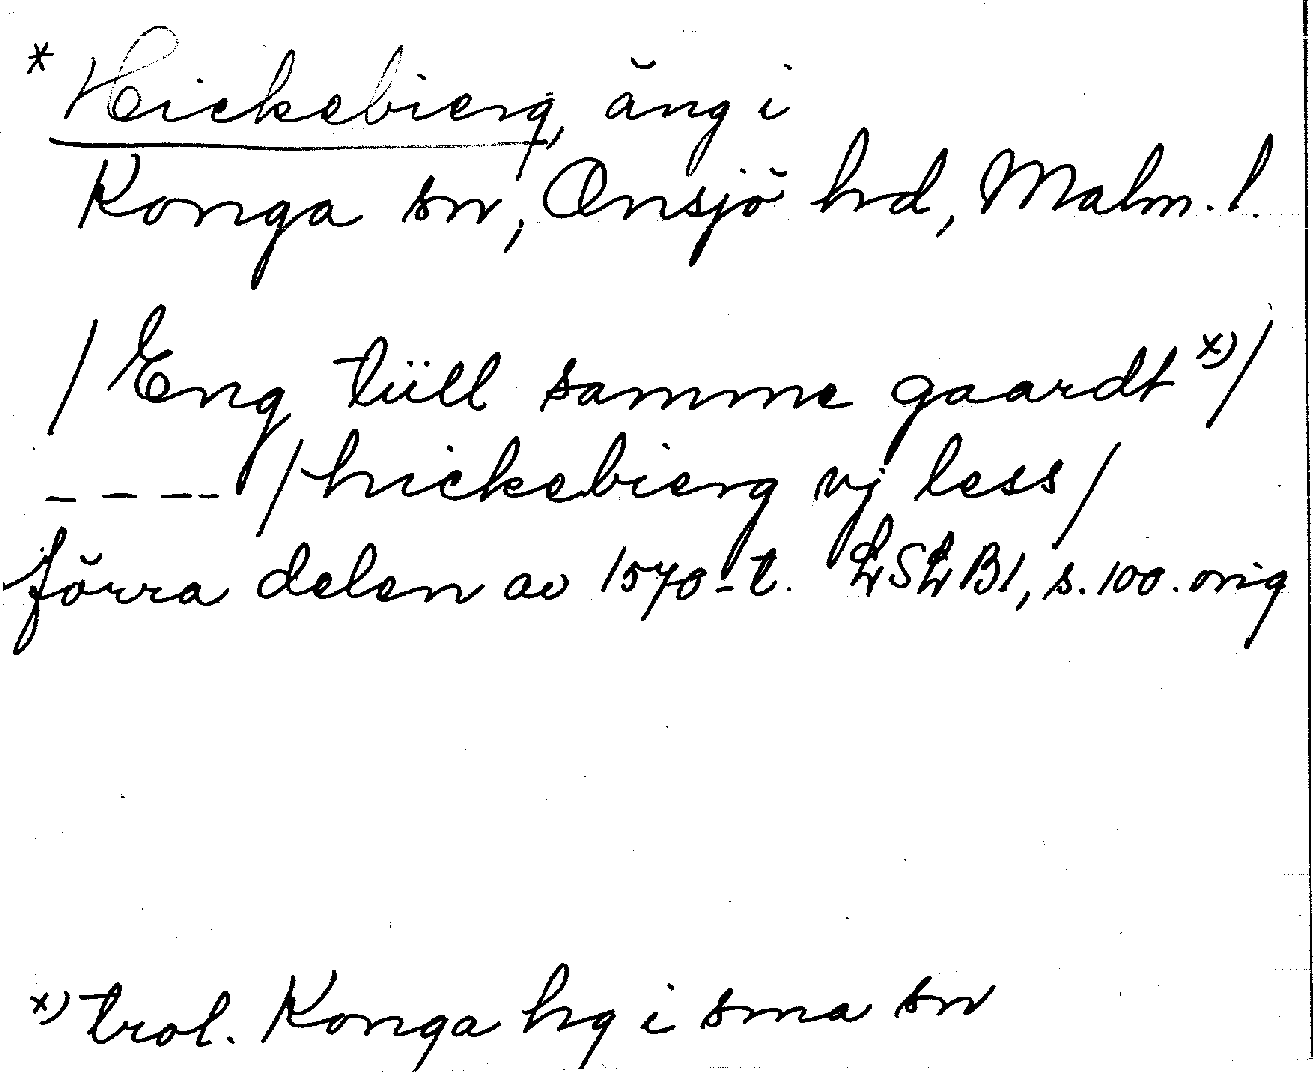 * Hickebierg, äng i
Konga sn, Onsjö hd, Malm. l.
/ Eng tüll samme gaardt x) /
_ _ _ _ / hickebierg vj less /
förra delen av 1570-t. LSLB1, s. 100. orig
x) trol. Konga hg i sma sn